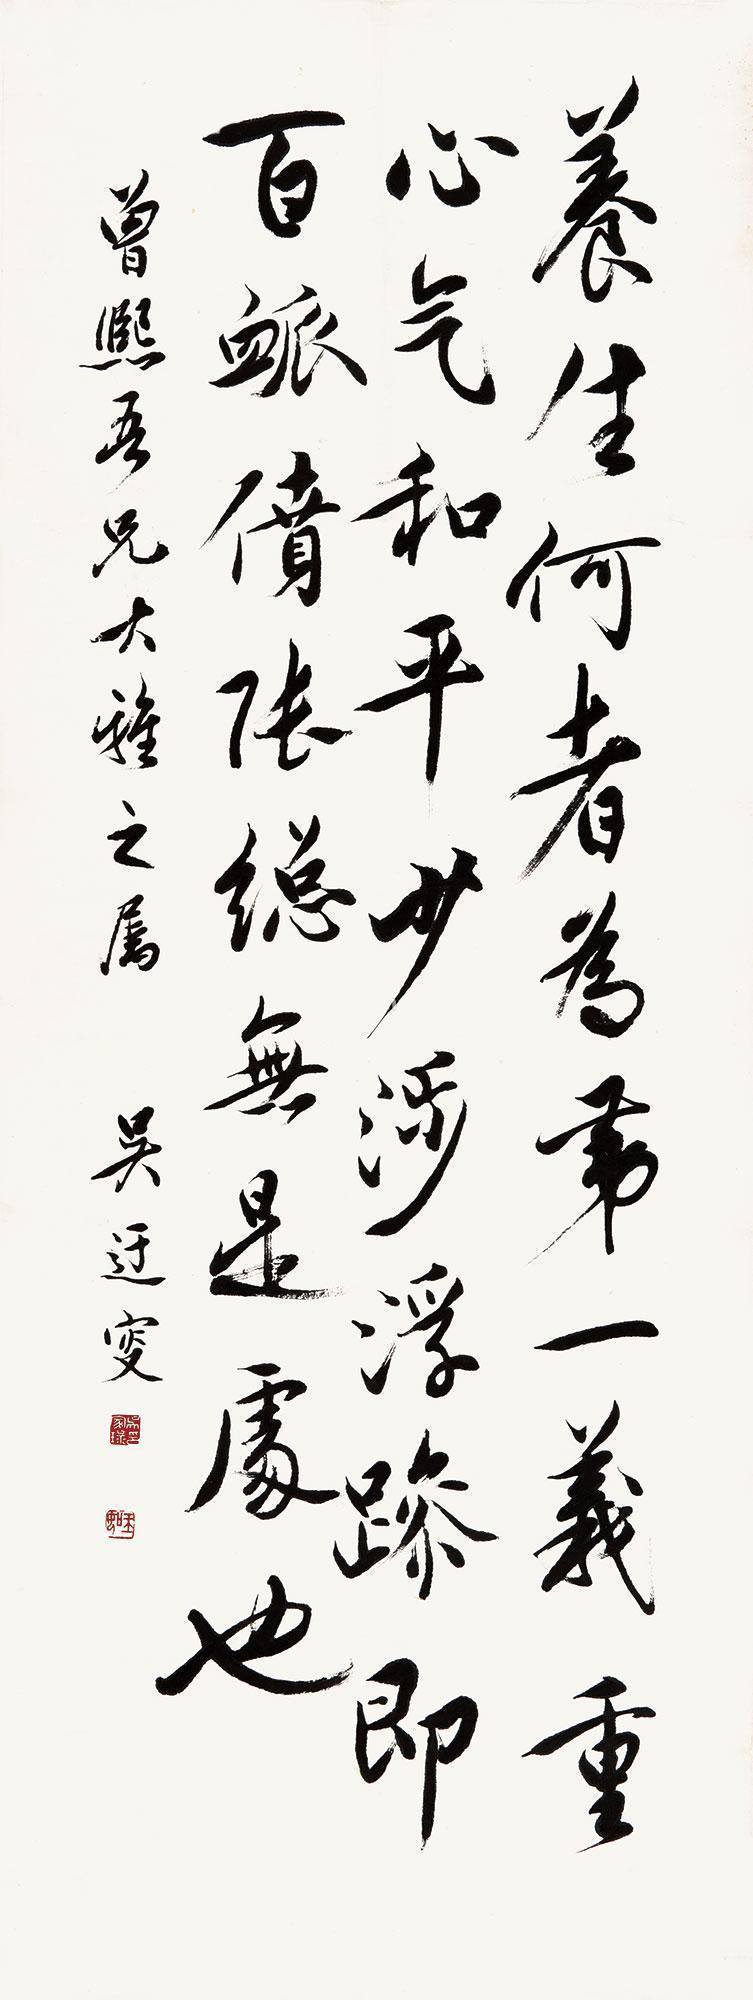 養生何者為第一義重
心气和平少涉浮躁即
百脈僨張總無是處也
曾熙吾兄大雅之屬 吳迋叜